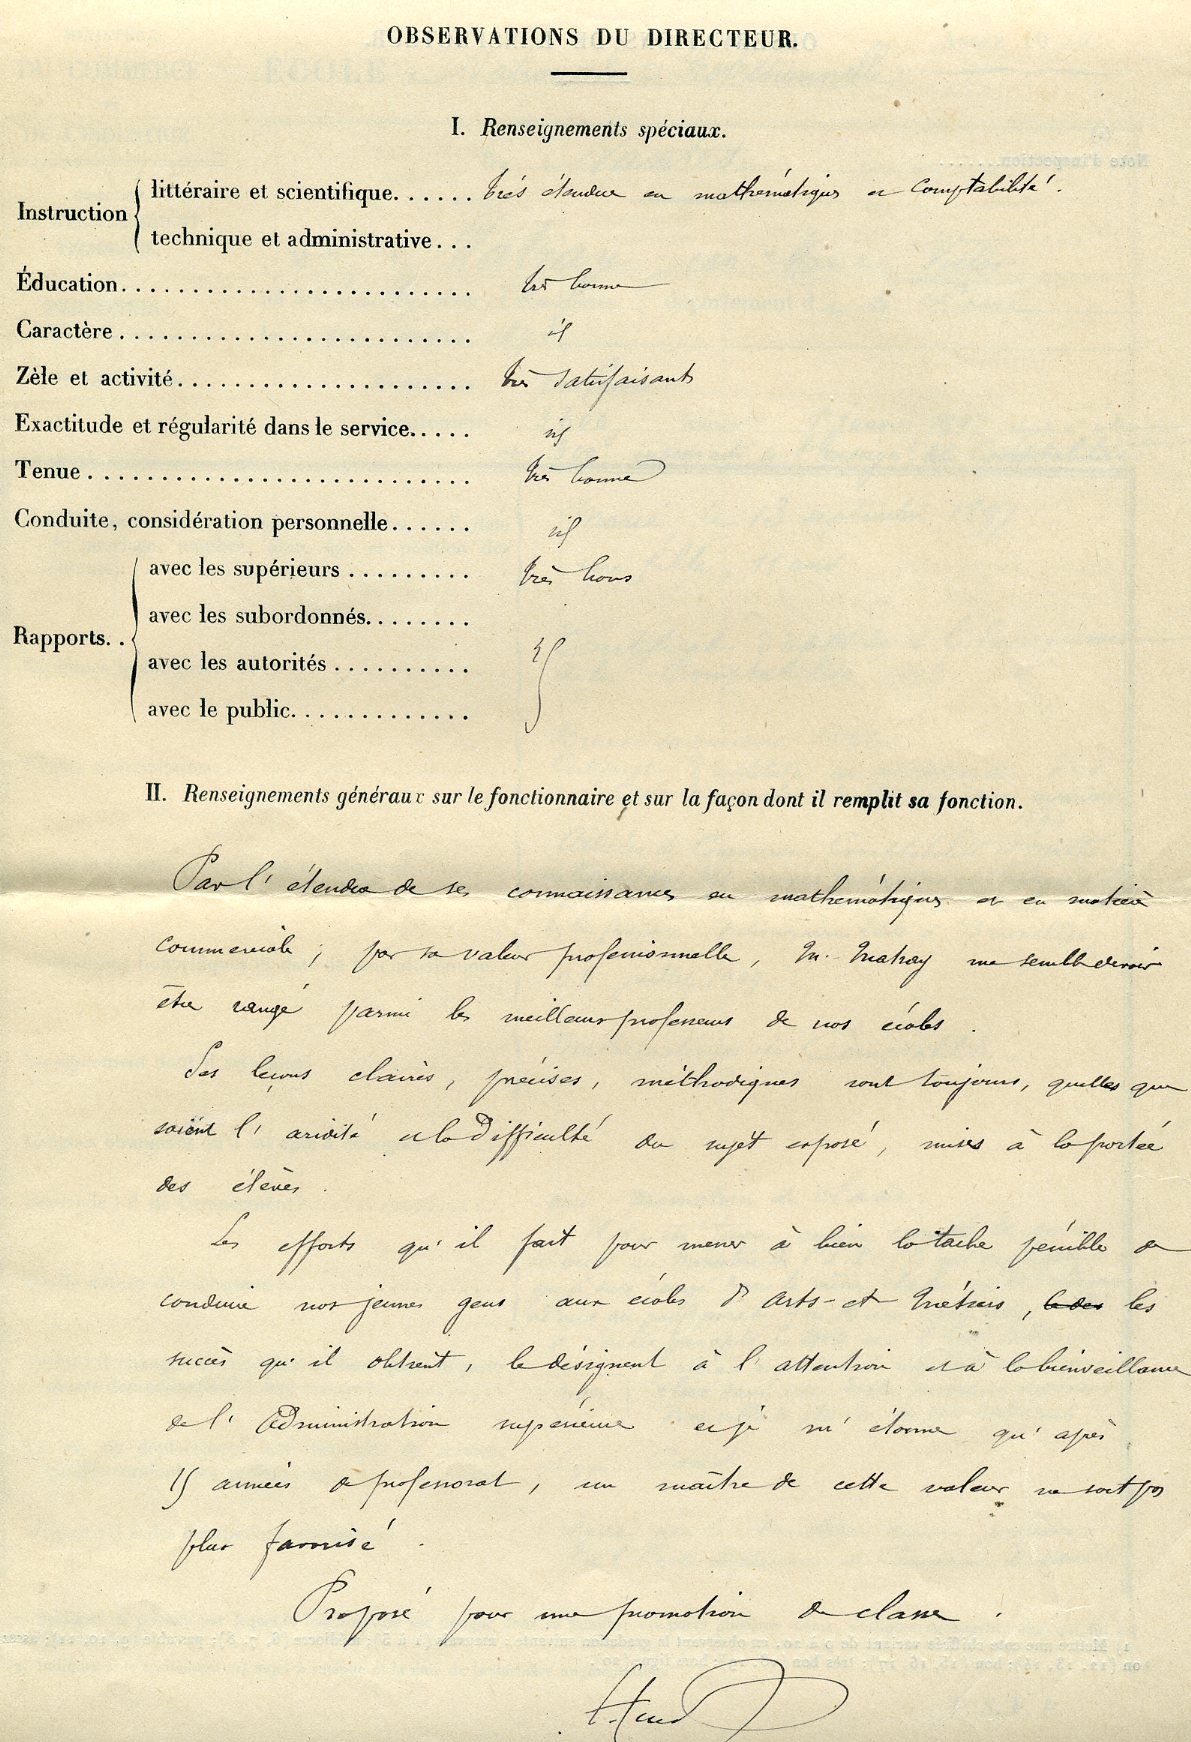 OBSERVATIONS DU DIRECTEUR.
I. Renseignements spéciaux.
Instruction
littéraire et scientifique...... très étendue en mathématiques et Comptabilité.
technique et administrative...
Éducation......................... très bonne
Caractère.......................... id
Zèle et activité...................... très satisfaisants
Exactitude et régularité dans le service..... id
Tenue............................ très bonne
Conduite, considération personnelle...... id
Rapports..
avec les supérieurs......... très bons
avec les subordonnés........
avec les autorités.......... id
avec le public.............
II. Renseignements généraux sur le fonctionnaire et sur la façon dont il remplit sa fonction.
Par l'étendue de ses connaissances en mathématiques et en matière
commerciale, par sa valeur professionnelle, M. me semble devoir
être rangé parmi les meilleurs professeurs de nos écoles.
Ses leçons claires, précises, méthodiques sont toujours, quelles que
soient l'aridité et la difficulté du sujet exposé, mises à la portée
des élèves.
Les efforts qu'il fait pour mener à bien la tache pénible de
conduire nos jeunes gens aux écoles d'Arts-et Métiers, les
succès qu'il obtient, le désignent à l'attention et à la bienveillance
de l'Administration supérieure et je m'étonne qu'après
15 années de professorat, un maître de cette valeur ne soit pas
plus favorisé.
Proposé pour une promotion de classe.